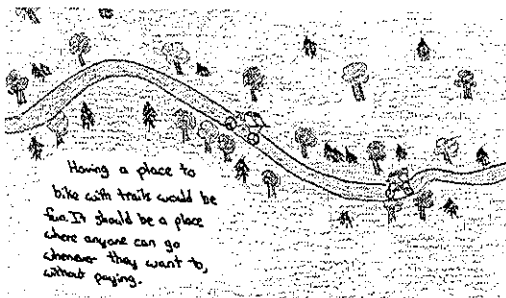 Having a place to
bike with trails would be
fun. It should be a place
where anyone can go
whenever they want to,
without paying.